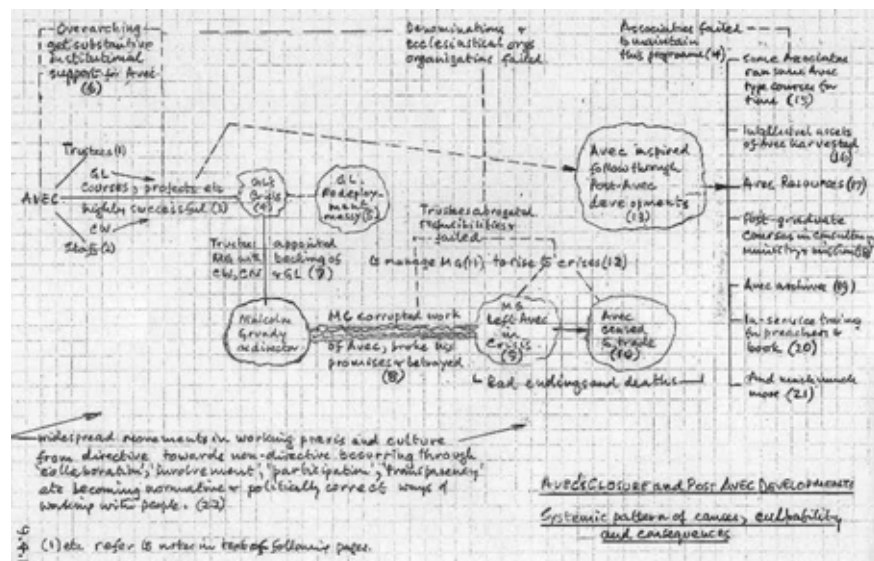 Overarching
get substantive
institutional
support for Avec
(6)
Denominations &
ecclesiastical orgs
organizations failed
Associates failed
to maintain
this programme (14)
some Associates
ran some Avec
type courses for
time (15)
Intellectual assets
of Avec harvested
(16)
Avec Resources (17)
Post-graduate
courses in consultancy
ministry & mission (18)
Avec archives (19)
In-service training
for preachers &
book (20)
And much much
more (21)
AVEC
Trustees (1)
GL
courses, projects etc
highly successful (3)
CW
Staff (2)
GL's
(4)
GL:
Redeploy-
ment
messy (5)
Avec inspired
follow through
Post-Avec
developments
(13)
Trustees abrogated
responsibilities &
failed
to manage MG (11), to rise to crises (12)
Trustees appointed
MG with backing of
CW, CN & GL (7)
Malcolm
Grundy
as director
MG corrupted work
of Avec, broke his
promises & betrayed
(8)
MG
Left Avec
in
Crisis
(9)
Avec
ceased
to trade
(10)
Bad endings and deaths
widespread movements in working praxis and culture
from directive towards non-directive occurring through
'collaboration', 'involvement', 'participation', 'transparency'
etc becoming normative & politically correct ways of
working with people. (22)
AVEC'S CLOSURE AND POST AVEC DEVELOPMENTS
Systemic pattern of causes, culpability
and consequences
(1) etc refer to notes in text of following pages.